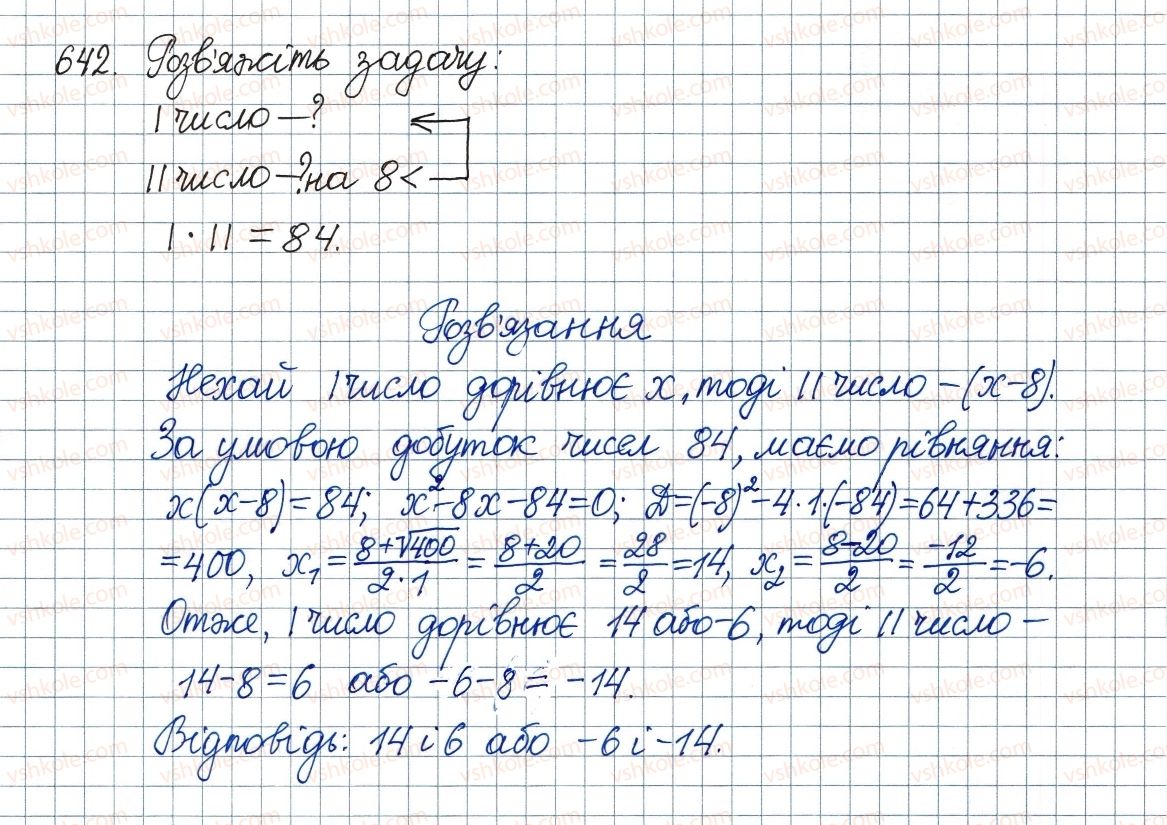 642. Розв'яжіть задачу:
I число – ?
II число – ? на 8 <
I · II = 84.
Розв'язання
Нехай I число дорівнює x, тоді II число – (x-8).
За умовою добуток чисел 84, маємо рівняння:
x(x-8)=84; x²-8x-84=0; Д=(-8)²-4·1·(-84)=64+336=
=400, x₁ = (8+√400)/(2·1) = (8+20)/2 = 28/2 = 14, x₂ = (8-20)/2 = -12/2 = -6.
Отже, I число дорівнює 14 або -6, тоді II число –
14-8=6 або -6-8= -14.
Відповідь: 14 і 6 або -6 і -14.
vshkole.com